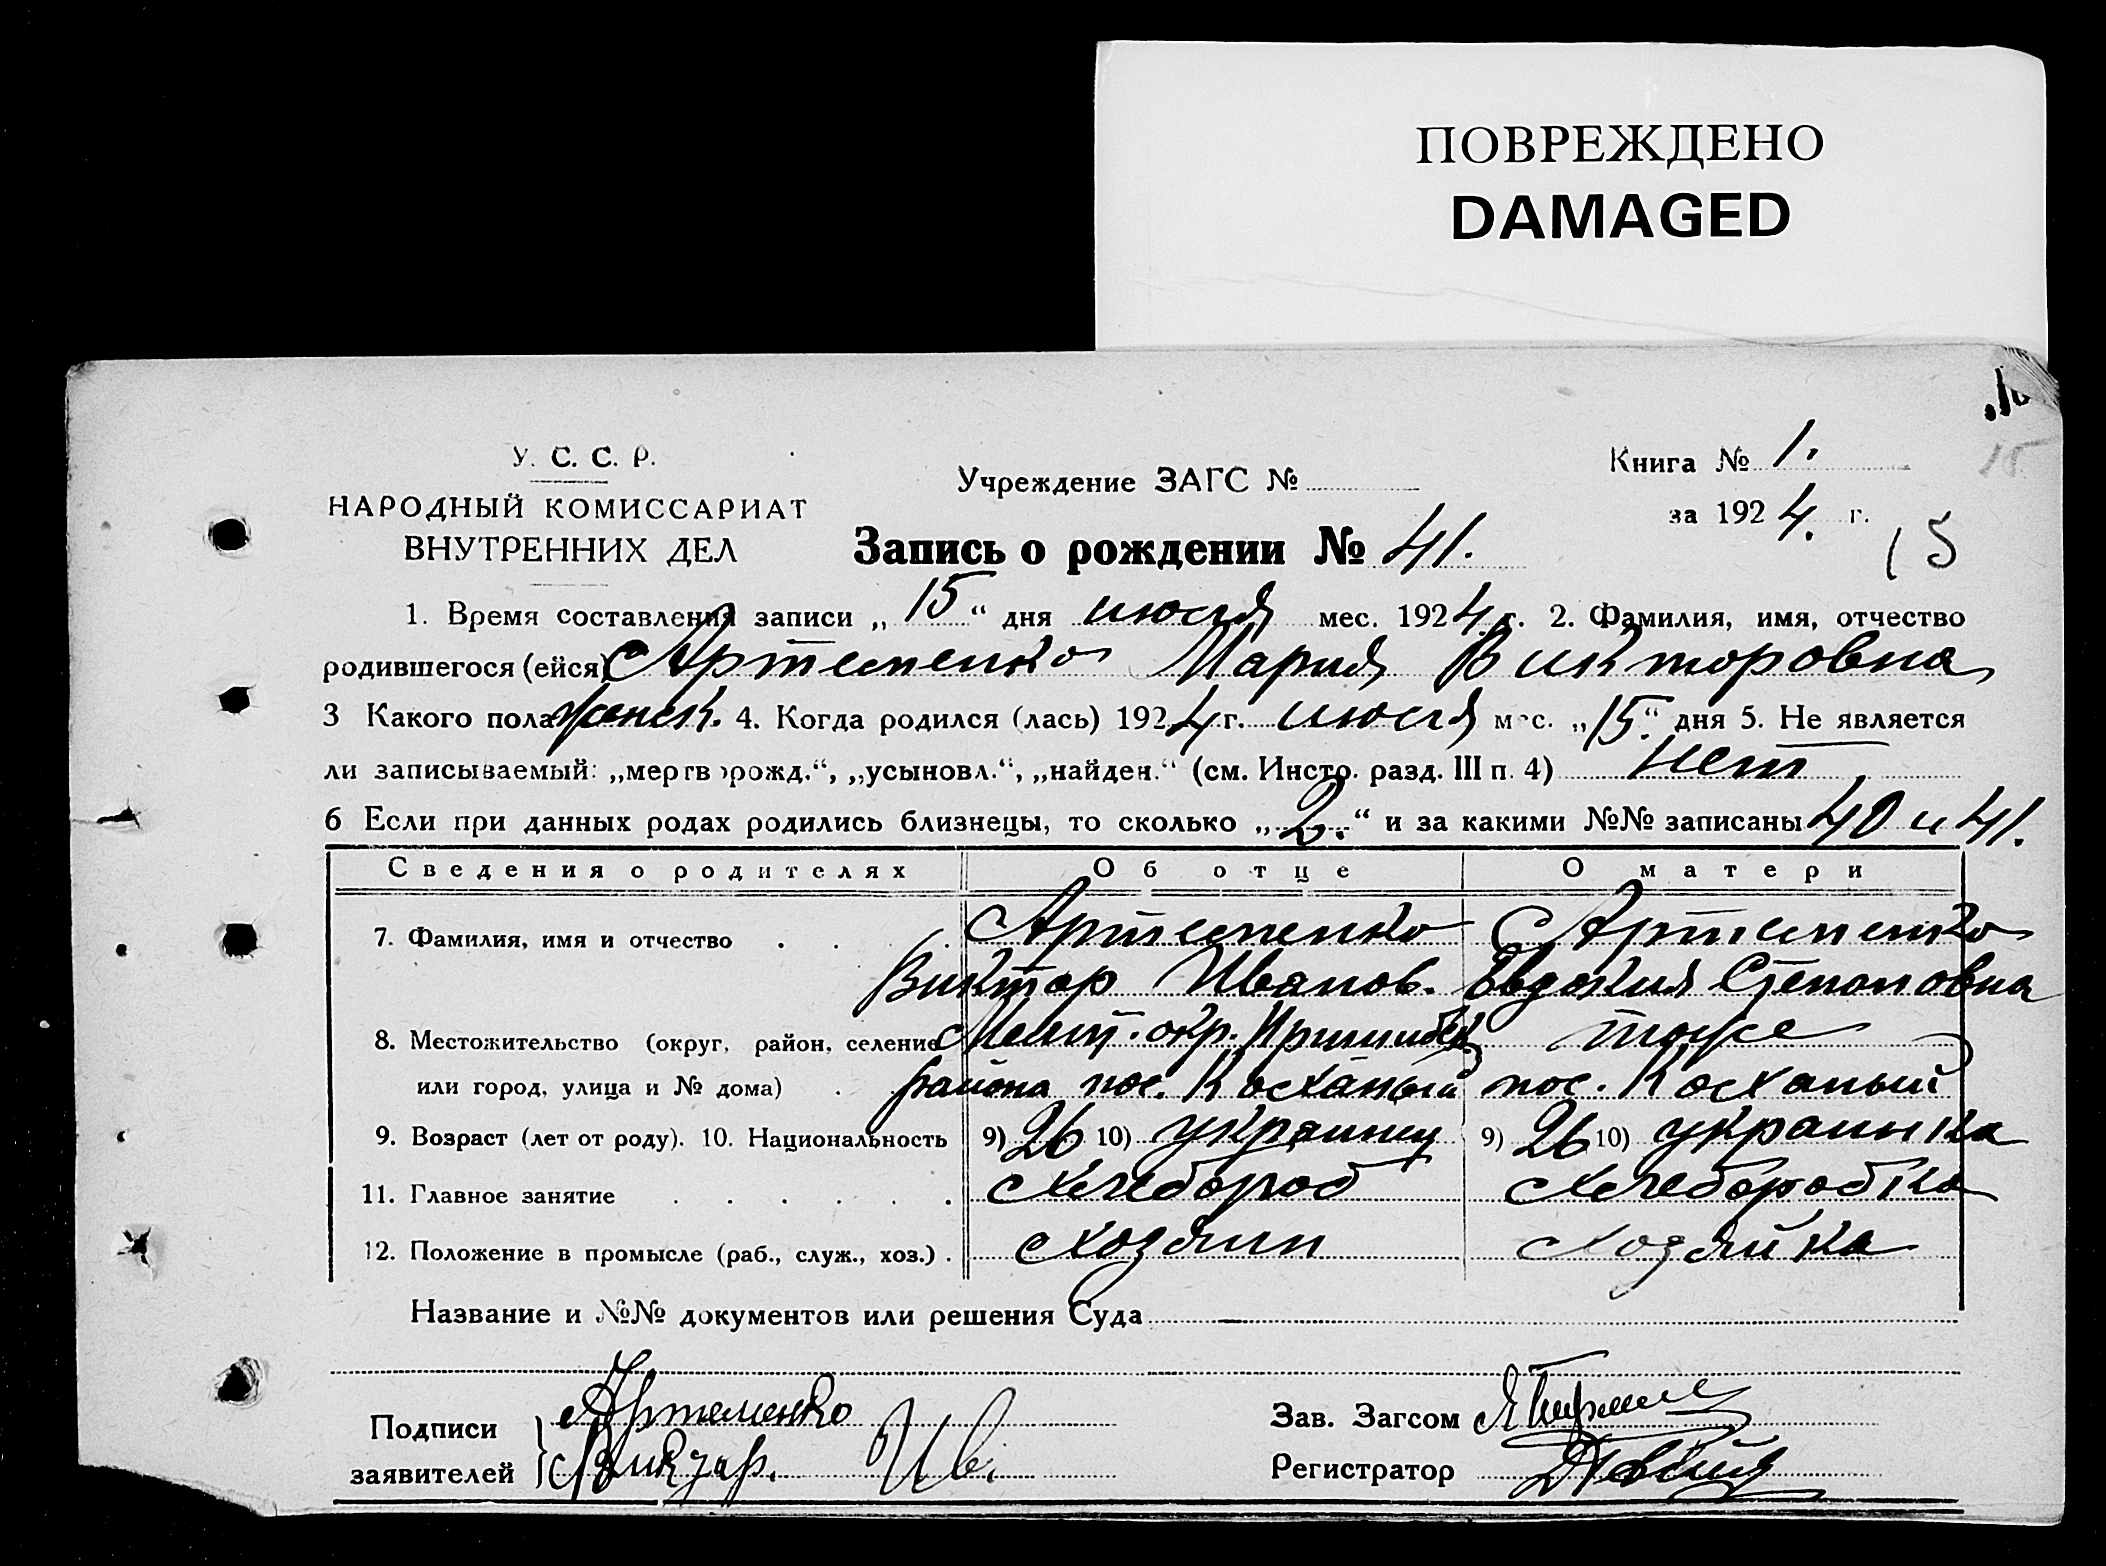 ПОВРЕЖДЕНО
DAMAGED
У. С. С. Р.
НАРОДНЫЙ КОМИССАРИАТ
ВНУТРЕННИХ ДЕЛ
Учреждение ЗАГС №
Книга № 1.
за 1924. г.
15
15
Запись о рождении № 41.
1. Время составления записи „15“ дня июля мес. 1924 г. 2. Фамилия, имя, отчество
родившегося (ейся) Артеменко Мария Викторовна
3 Какого пола женск. 4. Когда родился (лась) 1924 г. июля мес. „15“ дня 5. Не является
ли записываемый: „мертворожд.“, „усыновл.“, „найден.“ (см. Инстр. разд. III п. 4) нет
6 Если при данных родах родились близнецы, то сколько „2.“ и за какими №№ записаны 40 и 41.
Сведения о родителях Об отце О матери
7. Фамилия, имя и отчество Артеменко Артеменко
Виктор Иванов. Евдокия Степановна
8. Местожительство (округ, район, селение окр. тоже
или город, улица и № дома) района пос. Косханый пос. Косханый
9. Возраст (лет от роду). 10. Национальность 9) 26 10) украинец 9) 26 10) украинка
11. Главное занятие хлебороб хлеборобка
12. Положение в промысле (раб., служ., хоз.) хозяин хозяйка
Название и №№ документов или решения Суда
Подписи заявителей Артеменко
Виктор. Ив.
Зав. Загсом
Регистратор